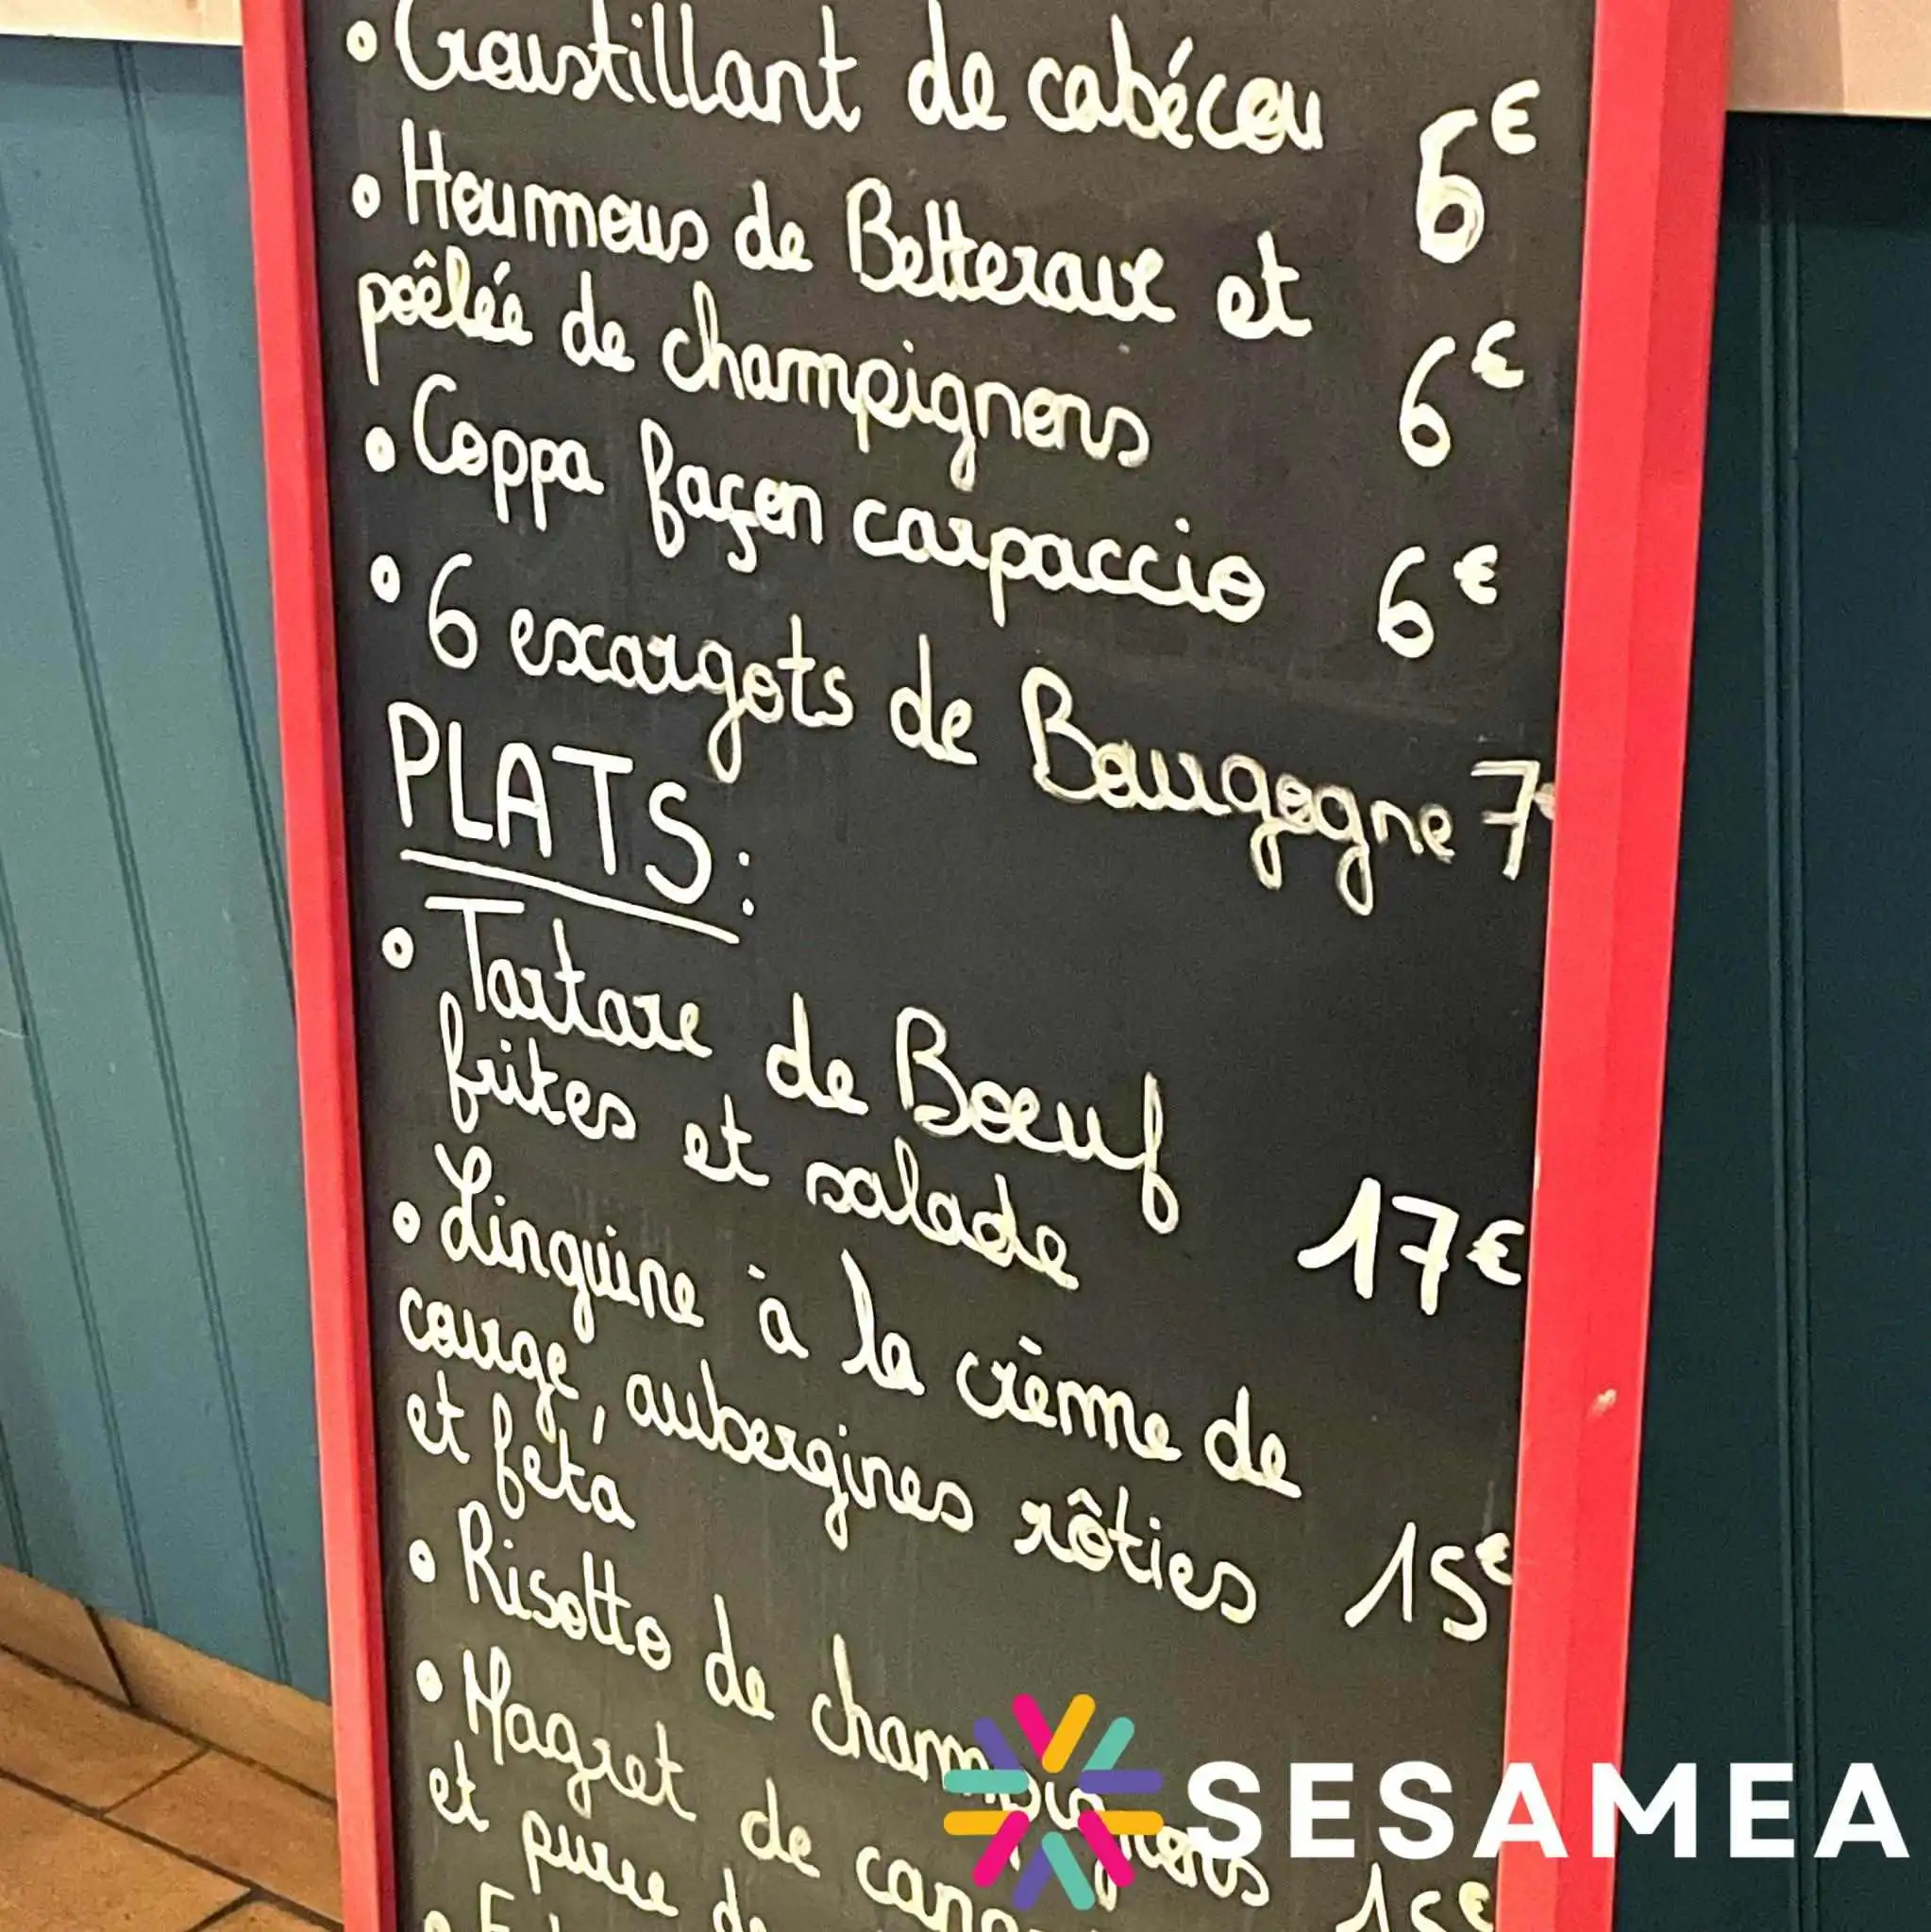 • Croustillant de cabécou 6€
• Houmous de Betterave et
poêlée de champignons 6€
• Coppa façon carpaccio 6€
• 6 escargots de Bourgogne 7€
PLATS:
• Tartare de Boeuf
frites et salade 17€
• Linguine à la crème de
courge, aubergines rôties 15€
et feta
• Risotto de champignons 15€
• Magret de
et puree de
SESAMEA